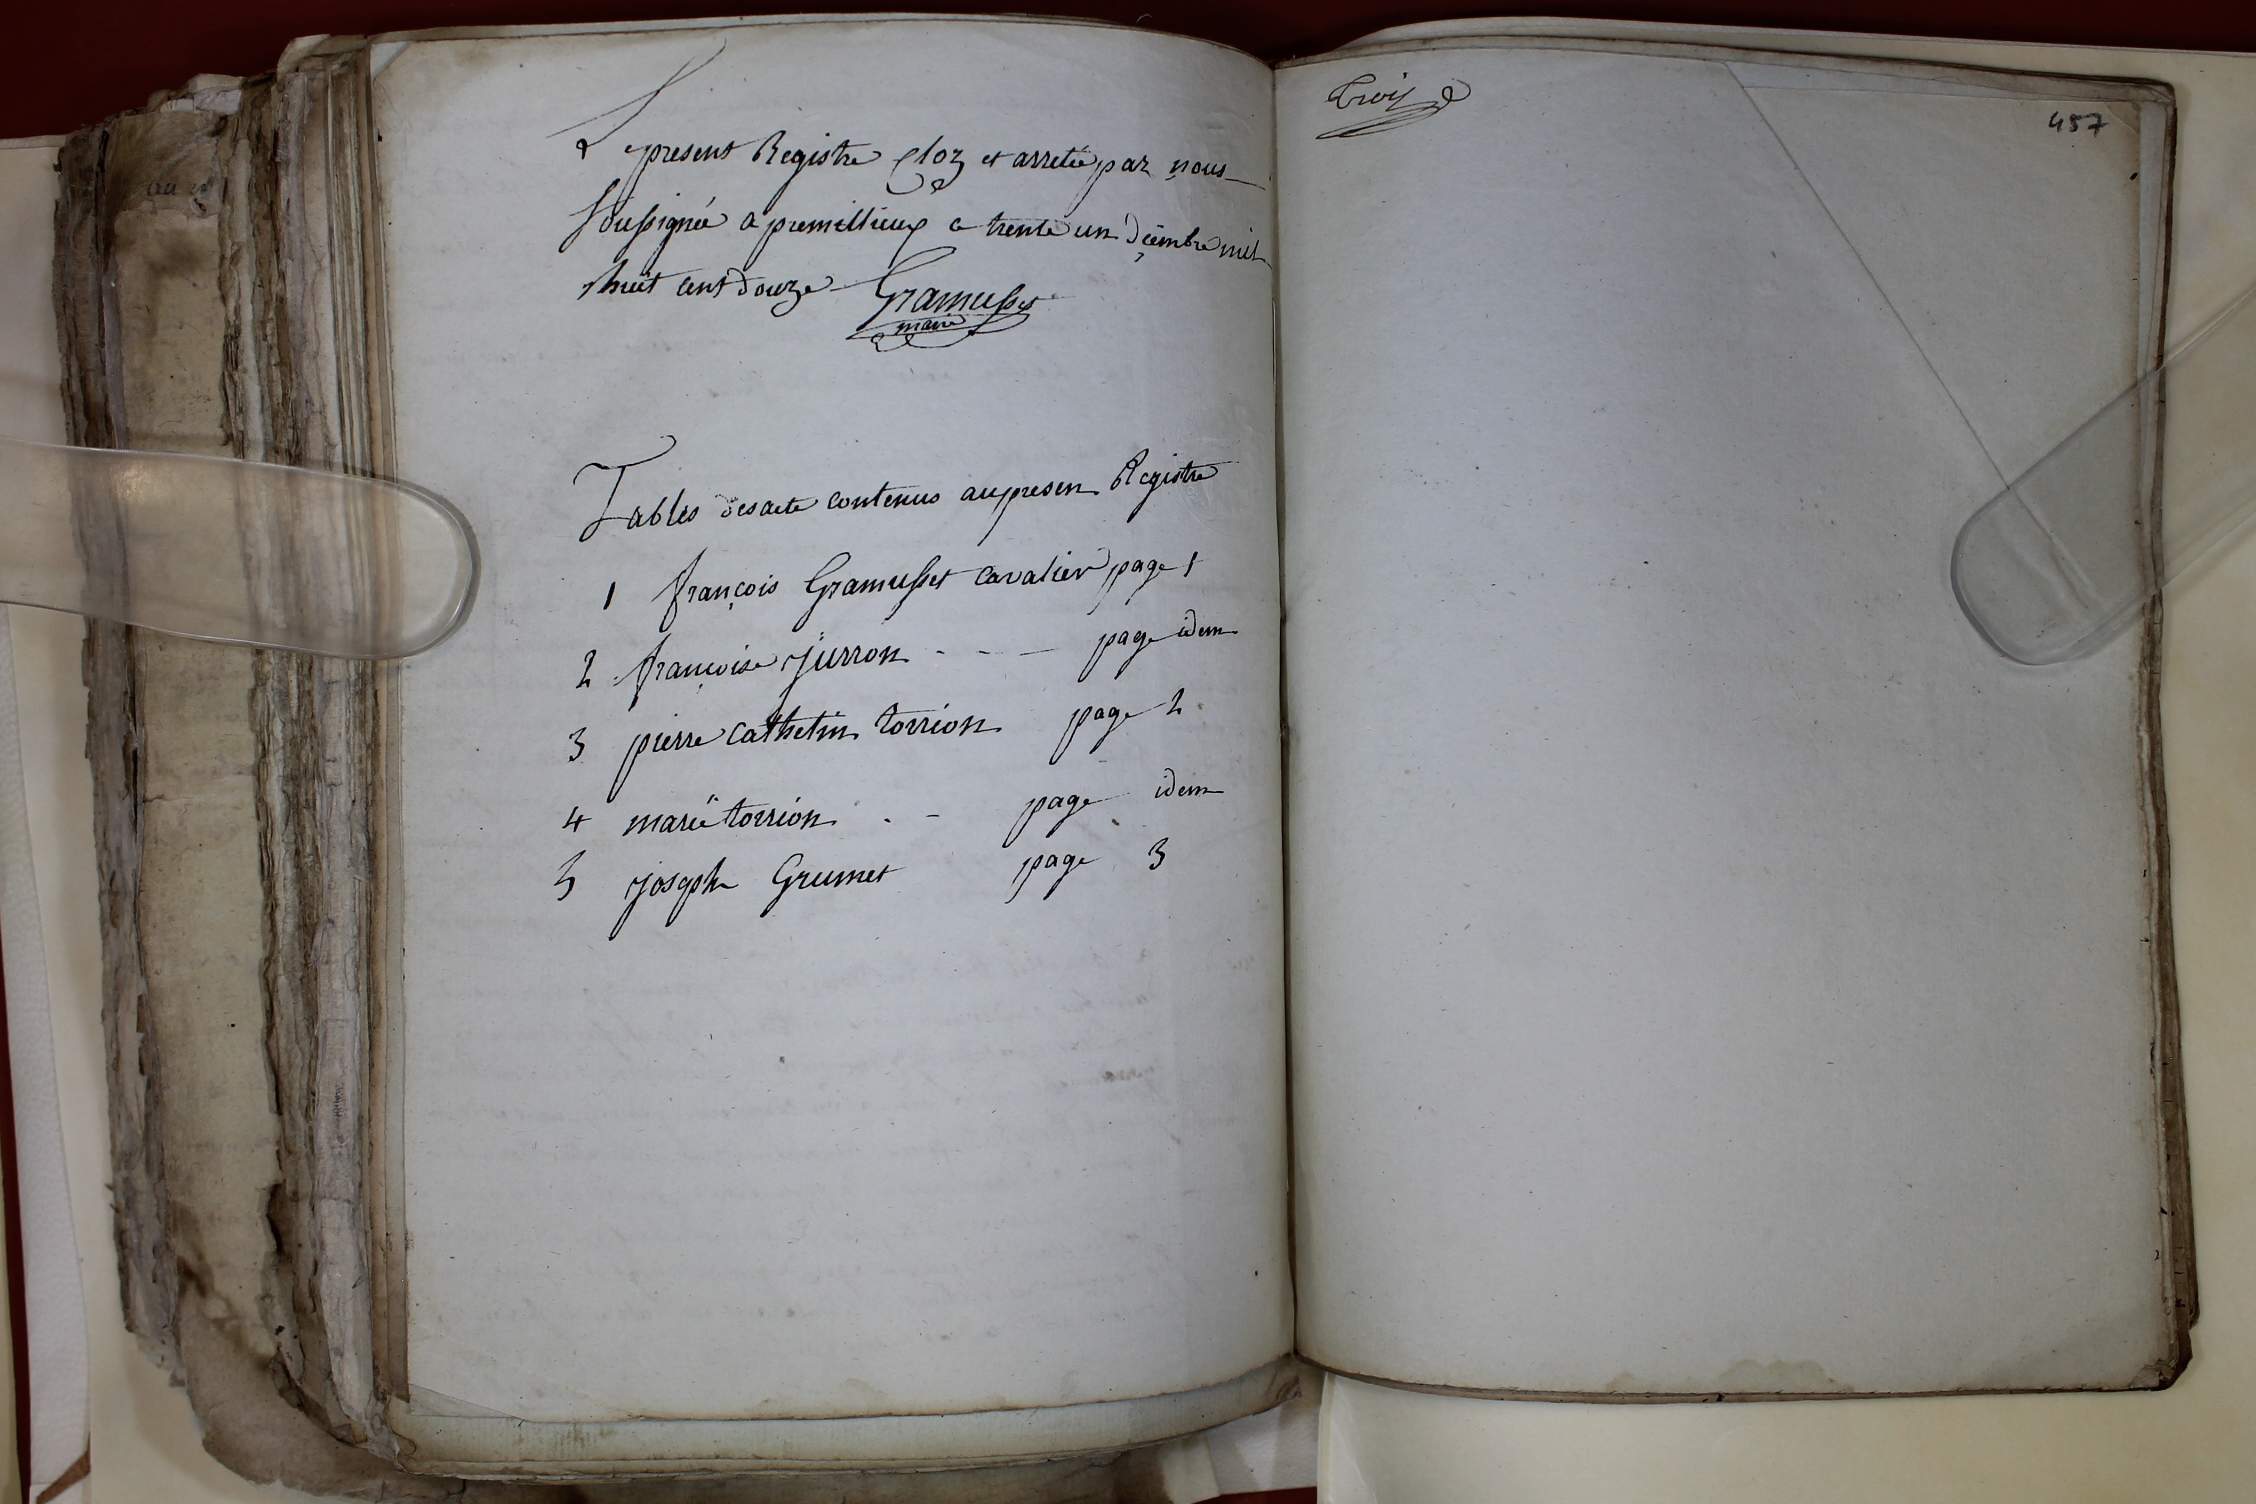 Le present Registre cloz et arretée par nous
soussignée a premillieux ce trente un décembre mil
huit cent douze Gramusset
maire
Tables des acte contenus au presen Registre
1 françois Gramusset cavalier page 1
2 françoise jurron - - — page idem
3 pierre cathelin torrion page 2
4 marië torrion . - page idem
5 joseph Grumet page 3
trois
457